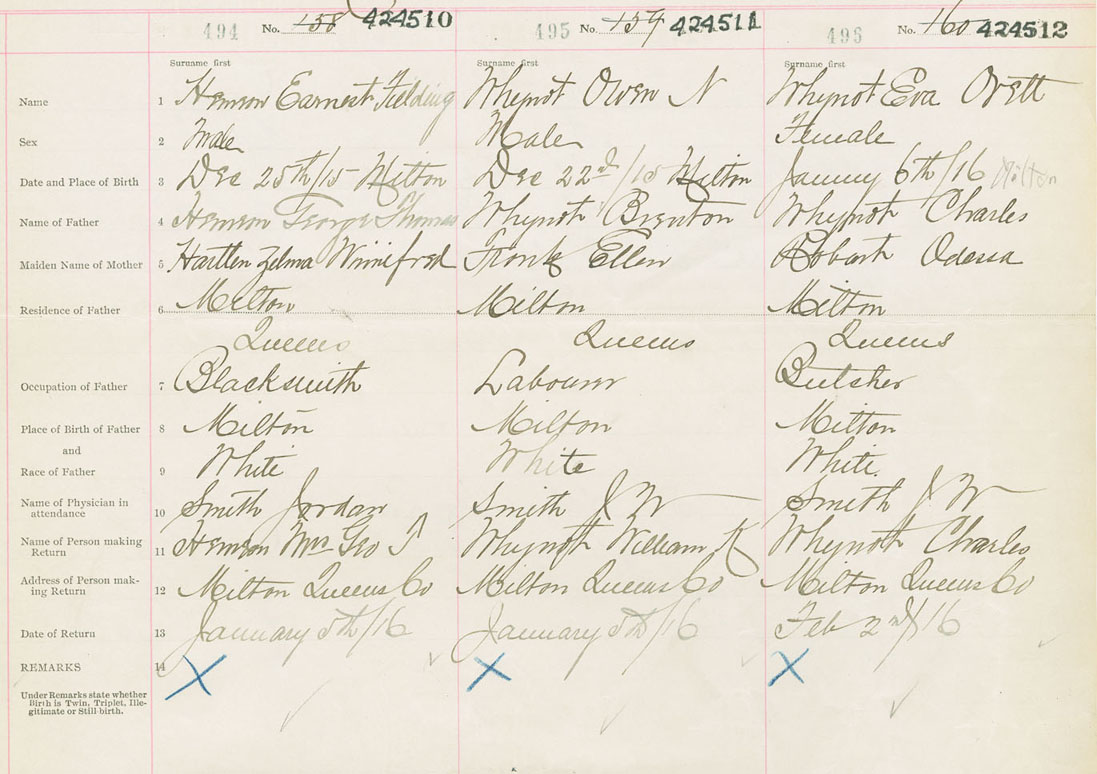 494 No. 158 424510 495 No. 159 424511 496 No. 160 424512
Surname first Surname first Surname first
Name 1 Hemson Earnest Fielding Whynot Owen N Whynot Eva Orett
Sex 2 Male Male Female
Date and Place of Birth 3 Dec 25th/15 Milton Dec 22nd/15 Milton January 6th/16 Milton
Name of Father 4 Hemson George Thomas Whynot Brenton Whynot Charles
Maiden Name of Mother 5 Hartlen Zelma Winnifred Fronk Ellen Robart Odessa
Residence of Father 6 Milton Milton Milton
Queens Queens Queens
Occupation of Father 7 Blacksmith Labourer Butcher
Place of Birth of Father 8 Milton Milton Milton
and
Race of Father 9 White White White.
Name of Physician in
attendance 10 Smith Jordan Smith J W Smith J W
Name of Person making
Return 11 Hemson Mrs Geo T Whynot William Whynot Charles
Address of Person mak-
ing Return 12 Milton Queens Co Milton Queens Co Milton Queens Co
Date of Return 13 January 5th/16 January 5th/16 Feb 2nd/16
REMARKS 14 X X X
Under Remarks state whether
Birth is Twin, Triplet, Ille-
gitimate or Still-birth.